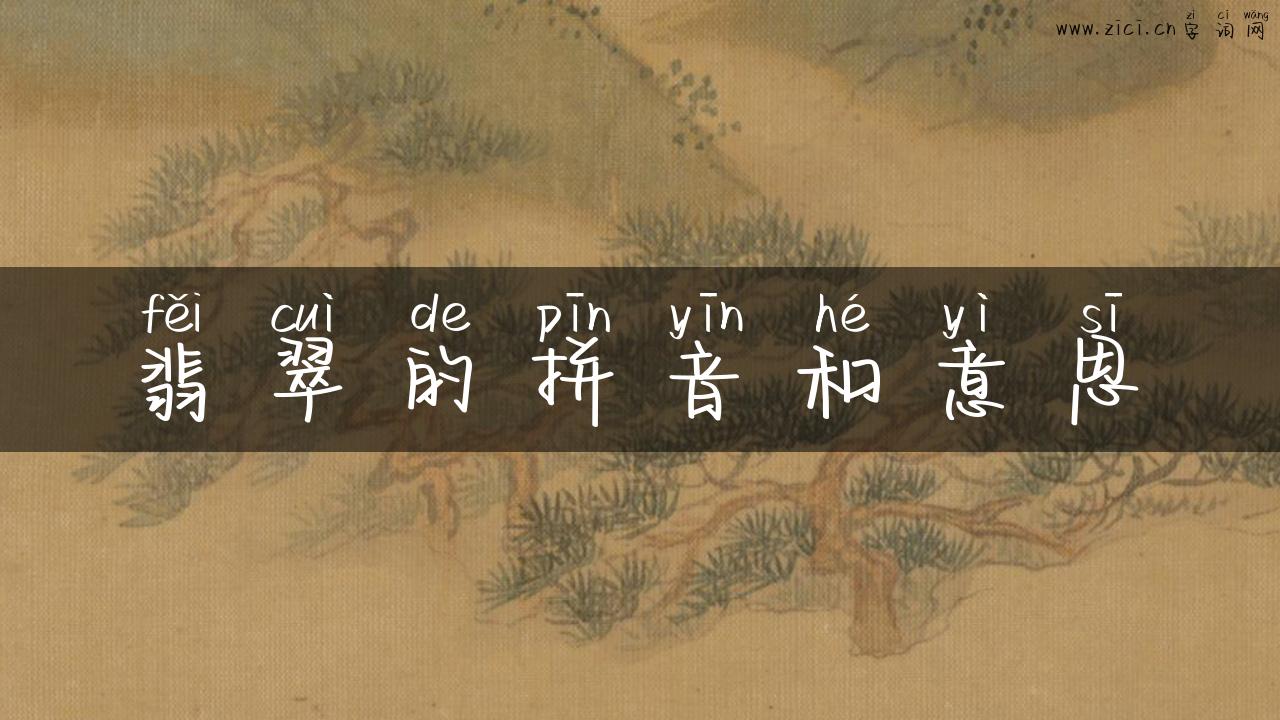 zì cí wǎng
www.zici.cn 字词网
fěi cuì de pīn yīn hé yì sī
翡翠的拼音和意思